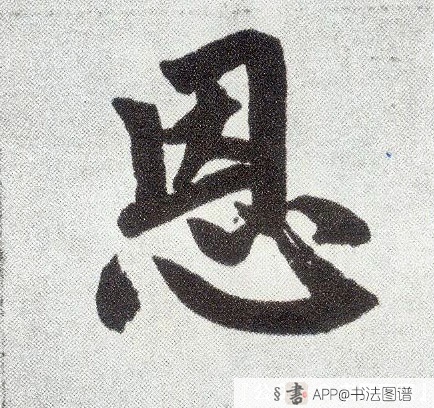 恩
§ 書 APP@书法图谱